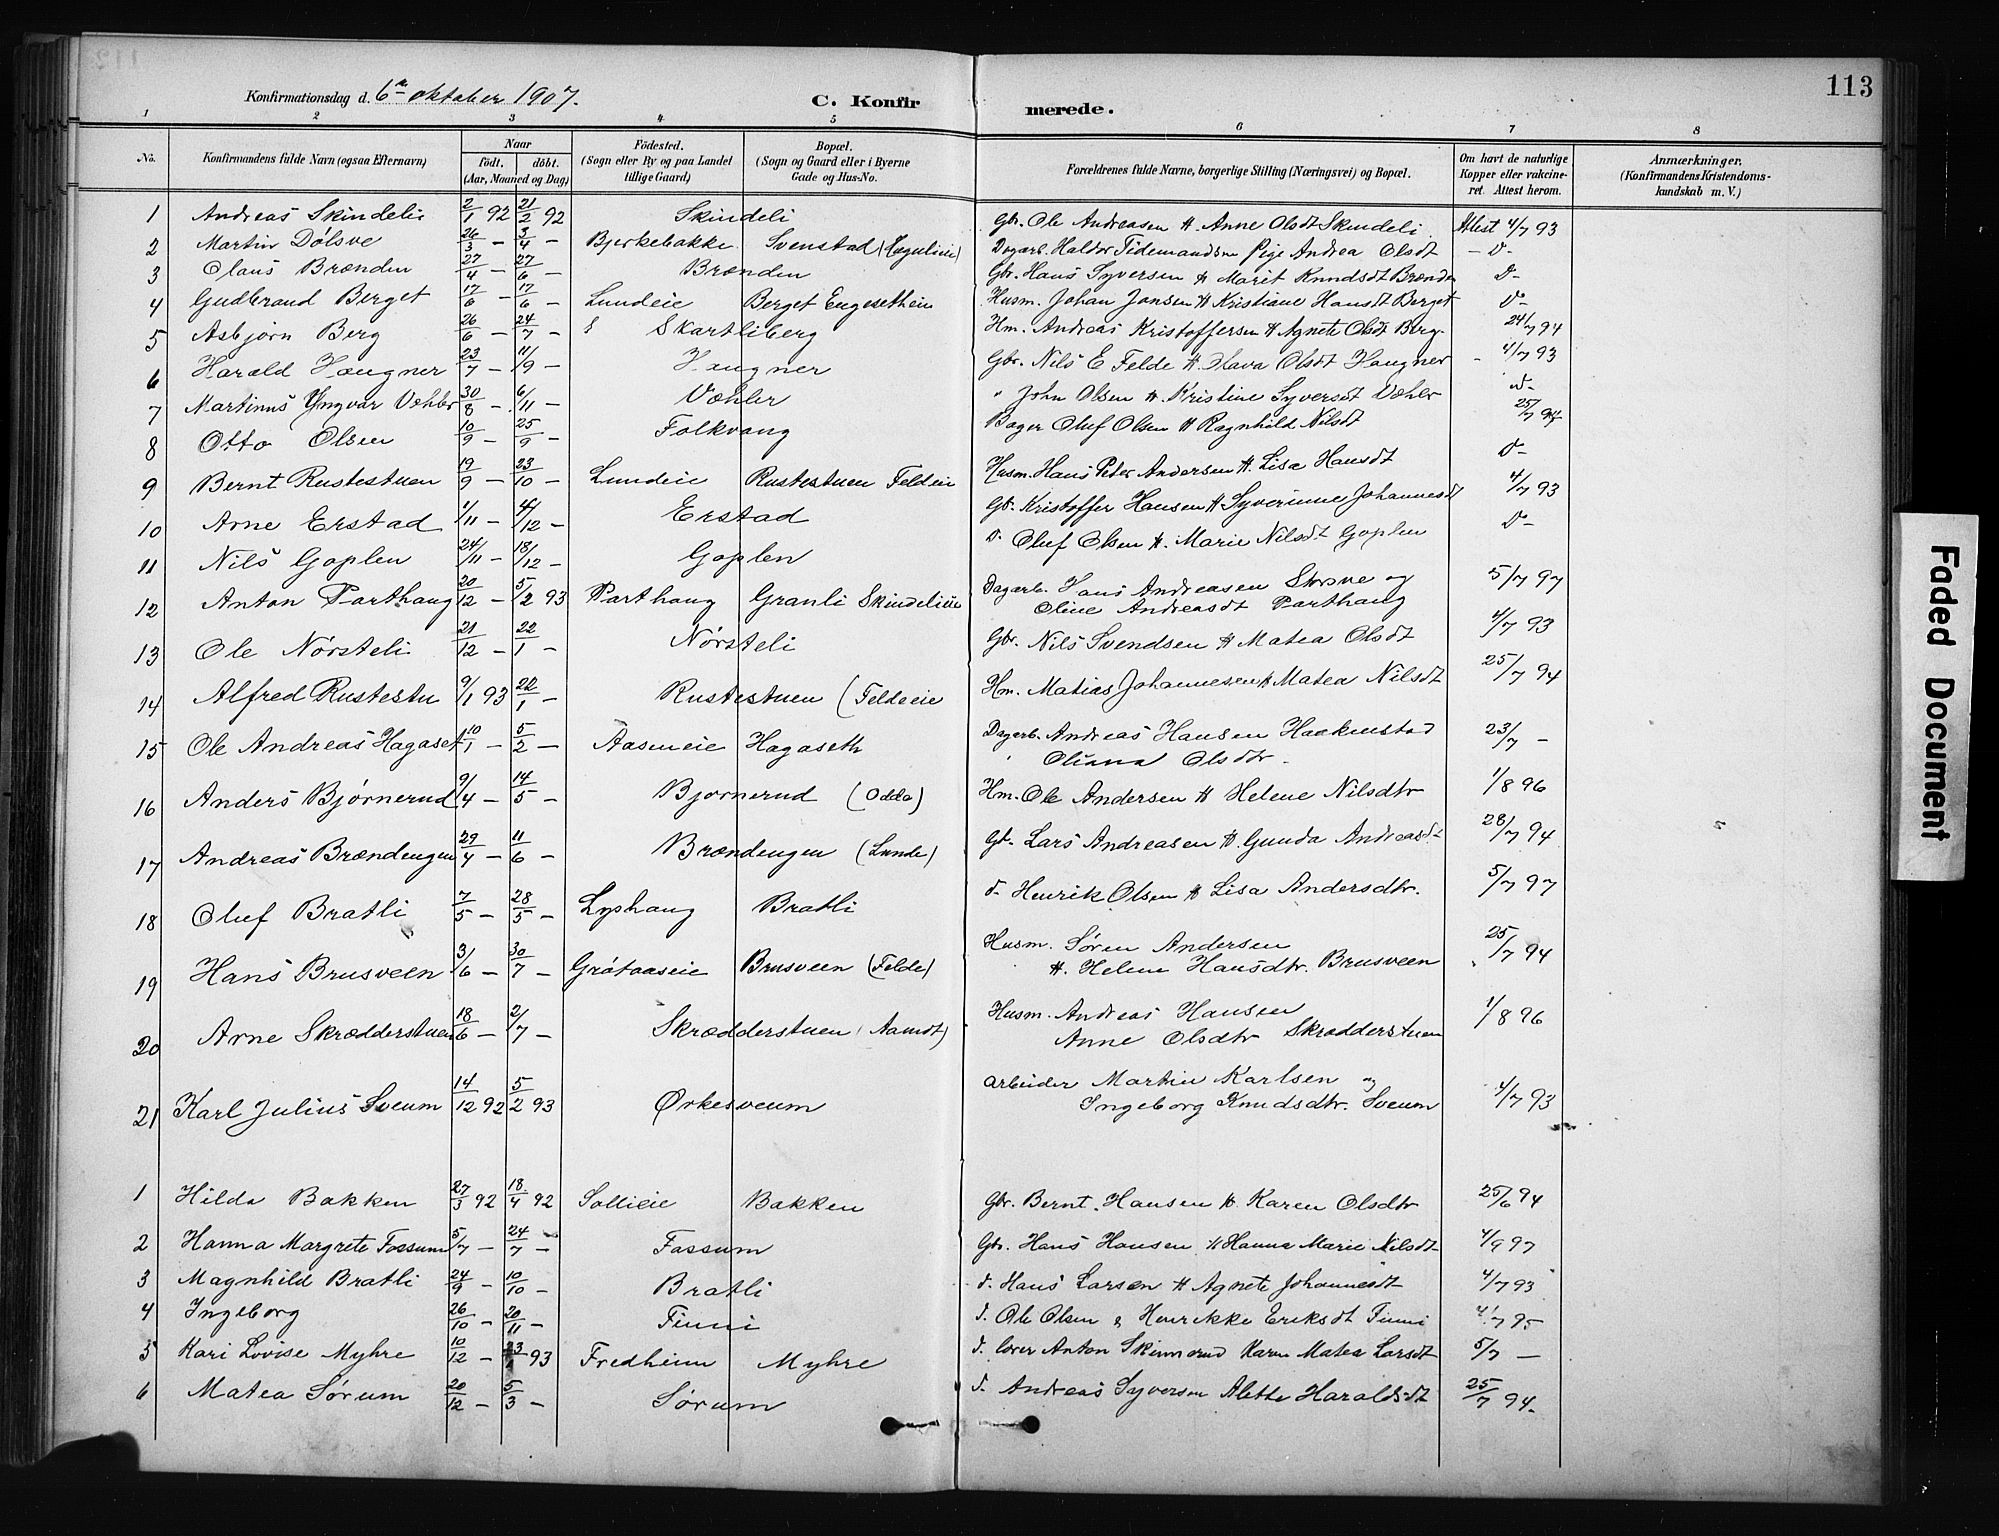 113
Konfirmationsdag d. 6te oktober 1907.
C. Konfirmerede.
1 2 3 4 5 6 7 8
No. Konfirmandens fulde Navn (ogsaa Efternavn) Naar født. døbt. (Aar, Maaned og Dag) Födested. (Sogn eller By og paa Landet tillige Gaard) Bopæl. (Sogn og Gaard eller i Byerne Gade og Hus-No. Forældrenes fulde Navne, borgerlige Stilling (Næringsvei) og Bopæl. Om havt de naturlige Kopper eller vakcineret. Attest herom. Anmærkninger. (Konfirmandens Kristendomskundskab m. V.)
1 Andreas Skindelie 2/1 92 21/2 92 Skindeli Gbr. Ole Andreasen H Anne Olsdt Skindeli Attest 4/7 93
2 Martin Dólsve 26/3 - 3/4 - Bjerkebakke Svenstad Dagarb. Haldor Tidemandsen Pige Andrea Olsdt - D-
3 Olaus Brænden 27/4 - 27/6 - Brænden Gbr. Hans Syversen H Marit Knudsdt Brænden D-
4 Gudbrand Berget 17/6 - 17/6 - Lundeie Berget Engesetheie Husm. Johan Jansen H Kristiane Hansdt Berget D-
5 Asbjørn Berg 26/6 - 24/7 - Skartliberg Hm. Andreas Kristoffersen H Agnete Olsdt Berg. 24/7 94
6 Harald Haugner 23/7 - 11/9 - Haugner Gbr. Nils E Felde H. Olava Olsdt Haugner - 4/7 93
7 Martinus Yngvar Væhler 30/8 - 6/11 - Væhler " John Olsen H. Kristine Syversdt Væhler D-
8 Otto Olsen 10/9 - 25/9 - Folkvang Bager Oluf Olsen H Ragnhild Nilsdt 25/7 94
9 Bernt Rustestuen 19/9 - 23/10 - Lundeie Rustestuen Feldeie Husm. Hans Peter Andersen H. Lisa Hansdt D-
10 Arne Erstad 1/11 - 4/12 - Erstad Gb. Kristoffer Hansen H Syverinne Johannesdt 4/7 93
11 Nils Goplen 24/11 - 18/12 - Goplen D. Oluf Olsen H. Marie Nilsdt Goplen D-
12 Anton Parthaug 20/12 - 5/2 93 Parthaug Granli Skindelieie Dagarb. Hans Andreasen Storsve og
Oline Andreasdt Parthaug 5/7 97
13 Ole Nørsteli 21/12 - 22/1 - Nørsteli Gbr. Nils Svendsen H Matea Olsdt 4/7 93
14 Alfred Rustestu 9/1 93 22/1 - Rustestuen (Feldeeie Hm. Matias Johannesen H Matea Nilsdt 25/7 94
15 Ole Andreas Hagaset 10/1 - 5/2 - Aasmeie Hagaseth Dagarb. Andreas Hansen Haakenstad
Oliana Olsdtr. 23/7 -
16 Anders Bjørnerud 9/4 - 14/5 - Bjørnerud (Odde) Hm. Ole Andersen H Helene Nilsdtr 1/8 96
17 Andreas Brændengen 29/4 - 11/6 - Brændengen (Lunde) Gb. Lars Andreasen H. Gunda Andreasdt 28/7 94
18 Oluf Bratli 7/5 - 28/5 - Lyshaug Bratli d. Henrik Olsen H Lisa Andersdtr. 5/7 97
19 Hans Brusveen 3/6 - 30/7 - Grótaaseie Brusveen (Felde) Husm. Søren Andersen
H. Helene Hansdtr. Brusveen 25/7 94
20 Arne Skrædderstuen 18/6 - 2/7 - Skrædderstuen (Aamodt) Husm. Andreas Hansen
Anne Olsdtr Skrædderstuen 1/8 96
21 Karl Julius Sveum 14/12 92 5/2 93 Ørkesveum arbeider Martin Karlsen og
Ingeborg Knudsdtr. Sveum 4/7 93
1 Hilda Bakken 27/3 92 18/4 92 Sollieie Bakken Gbr. Bernt Hansen H. Karen Olsdtr 25/6 94
2 Hanna Margrete Fossum 5/7 - 24/7 - Fossum Gbr. Hans Hansen H Hanna Marie Nilsdt 4/9 97
3 Magnhild Bratli 24/9 - 10/10 - Bratli d. Hans Larsen H Agnete Johannesdt 4/7 93
4 Ingeborg 26/10 - 20/11 - Finni d. Ole Olsen & Henrikke Eriksdt Finni 4/7 95
5 Kari Lovise Myhre 10/12 - 23/1 93 Fredheim Myhre d. lærer Anton Skinnerud Karen Matea Larsdt 5/7 -
6 Matea Sørum 20/12 - 5/3 - Sørum d. Andreas Syversen Alette Haraldsdt 25/7 94.
Faded Document